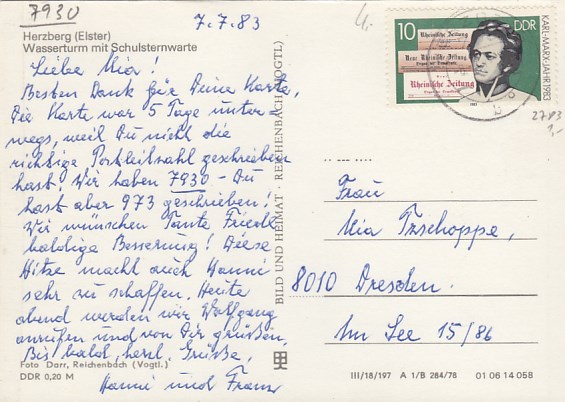 7930
7.7.83
4,-
Herzberg (Elster)
Wasserturm mit Schulsternwarte
Liebe Mia!
Besten Dank für Deine Karte,
Die Karte war 5 Tage unter
wegs, weil Du nicht die
richtige Postleitzahl geschrieben
hast! Wir haben 7930 - Du
hast aber 973 geschrieben!
Wir wünschen Tante Friedl
baldige Besserung! Diese
Hitze macht auch Hanni
sehr zu schaffen. Heute
abend werden wir Wolfgang
anrufen und von Dir grüßen,
Bis bald, herzl. Grüße,
Hanni und Franz
Foto Darr, Reichenbach (Vogtl.)
DDR 0,20 M
BILD UND HEIMAT · REICHENBACH (VOGTL)
10
DDR
Rheinische Zeitung
Neue Rheinische Zeitung
Rheinische Zeitung
KARL-MARX-JAHR 1983
1983
b
2783
1,-
Frau
Mia Tzschoppe,
8010 Dresden.
Im See 15/86
III/18/197 A 1/B 284/78 01 06 14 058